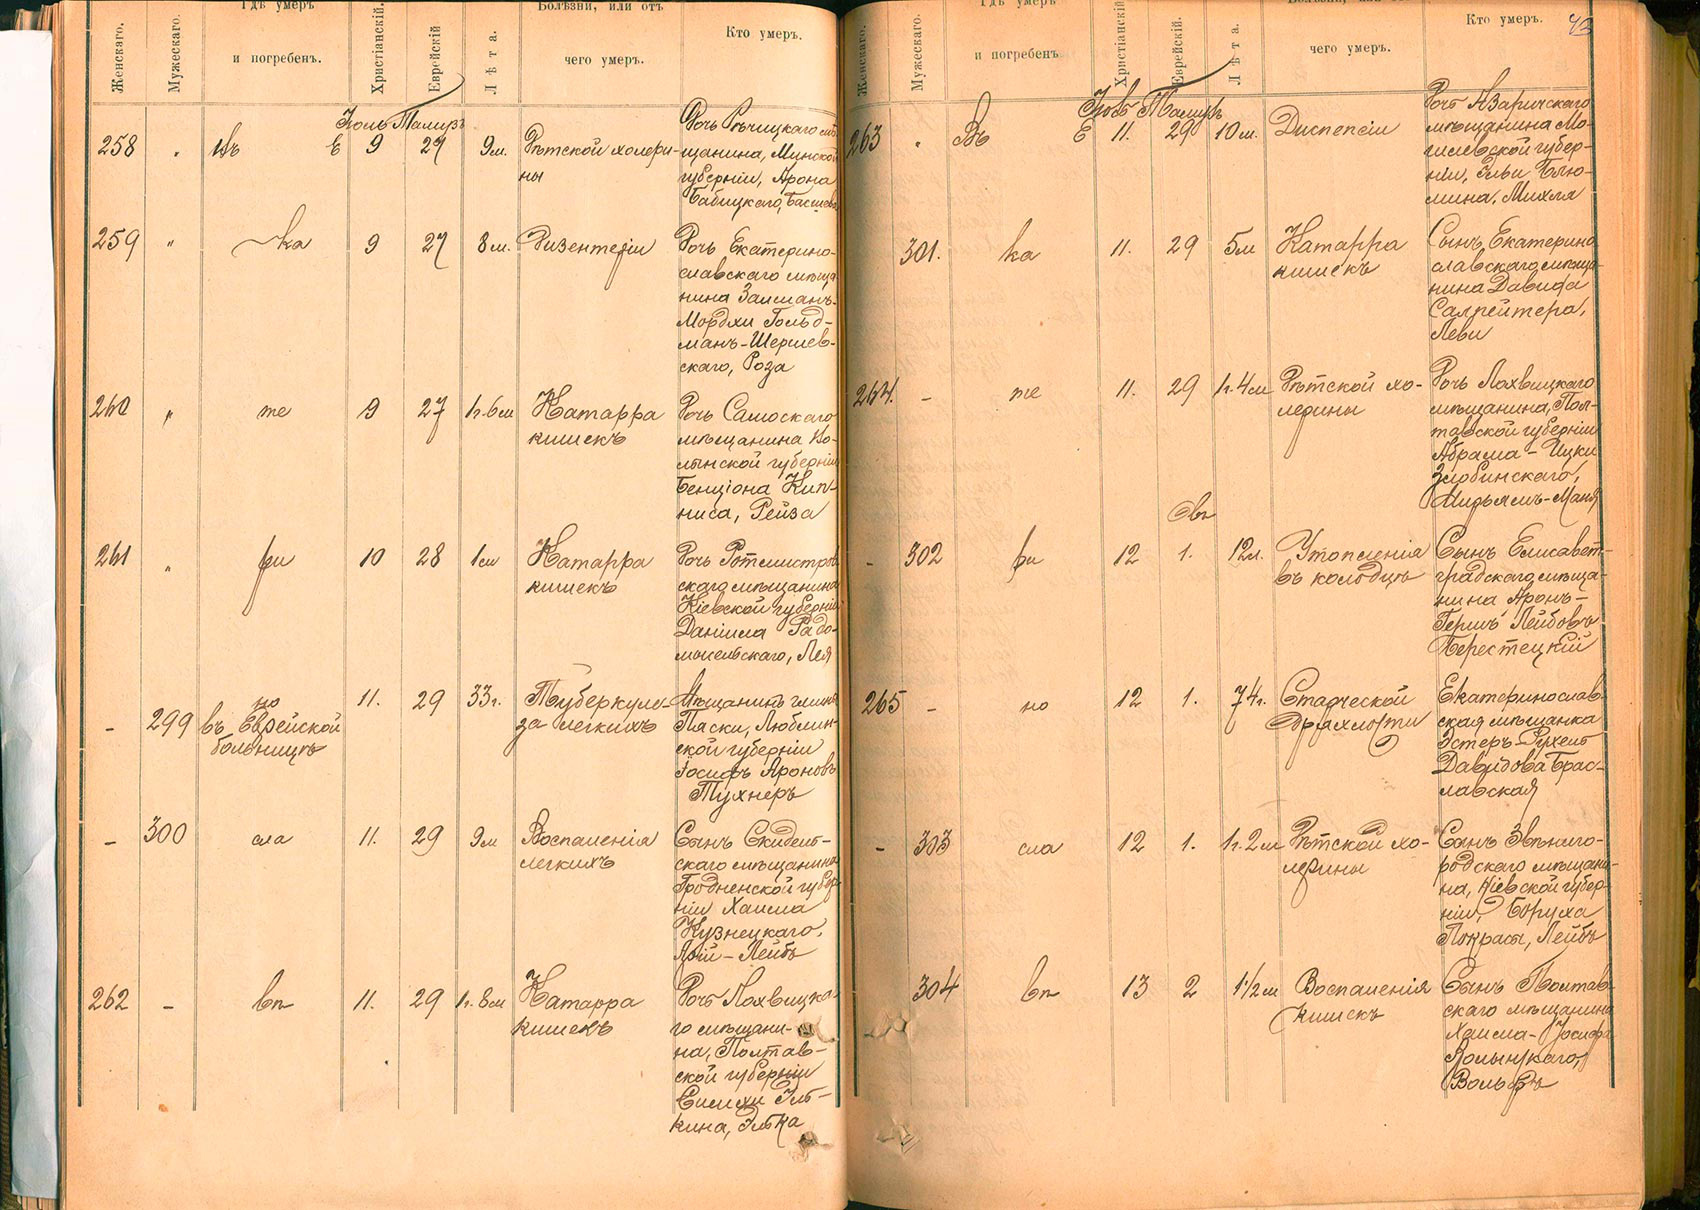 Женскаго.
Мужескаго.
Гдѣ умеръ
и погребенъ.
Христіанскій.
Еврейскій
Лѣта.
Болѣзни, или отъ
чего умеръ.
Кто умеръ.
Іюль Тамузъ
258 " въ Е 9 27 9 м.
Дѣтской холери-
ны
Дочь Рѣчицкаго мѣ-
щанина, Минской
губерніи, Арона
Бабицкаго, Басшева
259 " ка 9 27 8 м.
Дизентеріи
Дочь Екатерино-
славскаго мѣща
нина Залманъ-
Мордхи Гольд-
манъ-Шершев-
скаго, Роза
260 " те 9 27 1 г. 6 м
Катарра
кишекъ
Дочь
мѣщанина Во-
лынской губерніи
Бенціона Кип-
ниса, Рейза
261 " ри 10 28 1 м
Катарра
кишекъ
Дочь Ротмистров
скаго мѣщанина
Кіевской губерніи
Даніила Радо-
мысельскаго, Лея
- 299
но
въ Еврейской
больницѣ
11. 29 33 г.
Туберкуле-
за легкихъ
Мѣщанинъ гмины
Пяски, Люблин-
ской губерніи
Іосифъ Ароновъ
Тухнеръ
- 300 сла 11. 29 9 м
Воспаленія
легкихъ
Сынъ Скидель-
скаго мѣщанина
Гродненской губер
ніи Хаима
Кузнецкаго,
Лейбъ
262 - вп 11. 29 1 г. 8 м
Катарра
кишекъ
Дочь Лохвицка-
го мѣщани-
на, Полтав-
ской губерніи
Симхи Эль-
кина, Элька
Женскаго.
Мужескаго.
Гдѣ умеръ
и погребенъ
Христіанскій
Еврейскій.
Лѣта.
чего умеръ.
Кто умеръ.
43
Іюль Тамузъ
263 " Въ Е 11. 29 10 м.
Диспепсіи
Дочь Азаричскаго
мѣщанина Мо-
гилевской губер-
ніи, Эльи Блю-
мина, Михля
301. ка 11. 29 5 м
Катарра
кишекъ
Сынъ Екатерино
славскаго мѣща-
нина Давида
Салрейтера,
Леви
264. - те 11. 29 1 г. 4 м
Дѣтской хо-
лерины
Дочь Лохвицкаго
мѣщанина, Пол-
тавской губерніи
Абрама-Ицки
Злобинскаго,
Мирьямъ-Маня
Овъ
- 302 ри 12 1. 12 л.
Утопленія
въ колодцѣ
Сынъ Елисавет-
градскаго мѣща-
нина Аронъ-
Гершъ Лейбовъ
Берестецкій
265 - но 12 1. 74 г.
Старческой
дряхлости
Екатеринослав-
ская мѣщанка
Эстеръ-Рухель
Давидова Брас-
лавская
- 303 сла 12 1. 1 г. 2 м
Дѣтской хо-
лерины
Сынъ Звѣниго-
родскаго мѣщани-
на, Кіевской губер-
ніи, Боруха
Покрасы, Лейбъ
304 вп 13 2 1 1/2 м
Воспаленія
кишекъ
Сынъ Полтав-
скаго мѣщанина
Хаима-Іосифа
Волынскаго,
Вольфъ